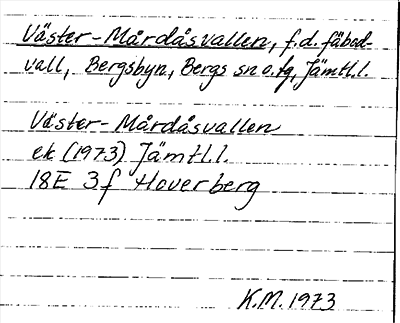 Väster-Mårdåsvallen, f.d. fäbod-
vall, Bergsbyn, Bergs sn o. tg, Jämtl.l.
Väster-Mårdåsvallen
ek (1973) Jämtl.l.
18E 3f Hoverberg
K.M. 1973